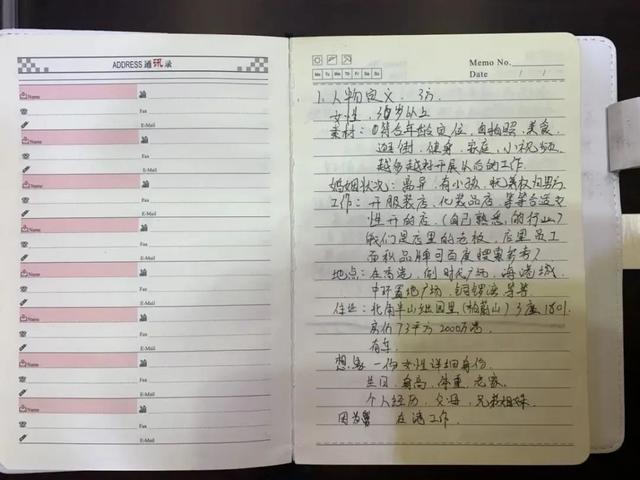 ADDRESS 通讯录
Name
Fax
E-Mail
Name
Fax
E-Mail
Name
Fax
E-Mail
Name
Fax
E-Mail
Name
Fax
E-Mail
Name
Fax
E-Mail
Name
Fax
E-Mail
Name
Fax
E-Mail
Memo No.
Mo Tu We Th Fr Sa Su
Date / /
1. 人物定义. 3方.
女性. 30岁以上
素材: ①符合年龄定位, 自拍照. 美食.
逛街. 健身. 家庭. 小视频.
越多越好开展以后的工作.
婚姻状况: 离异. 有小孩. 抚养权归男方
工作: 开服装店. 化妆品店. 等等合适女
性开的店. (自己熟悉的行业)
我们是店里的老板. 店里员工
面积品牌可百度搜索参考)
地点: 在香港. 例 时代广场. 海港城.
中环置地广场. 铜锣湾 等等
住址: 北角半山 园里 (柏蔚山) 3座1801.
房价73平方 2000万港.
有车.
想象 一份女性详细身份.
生日. 身高. 体重. 老家.
个人经历. 父母. 兄弟姐妹.
因为 在港工作.